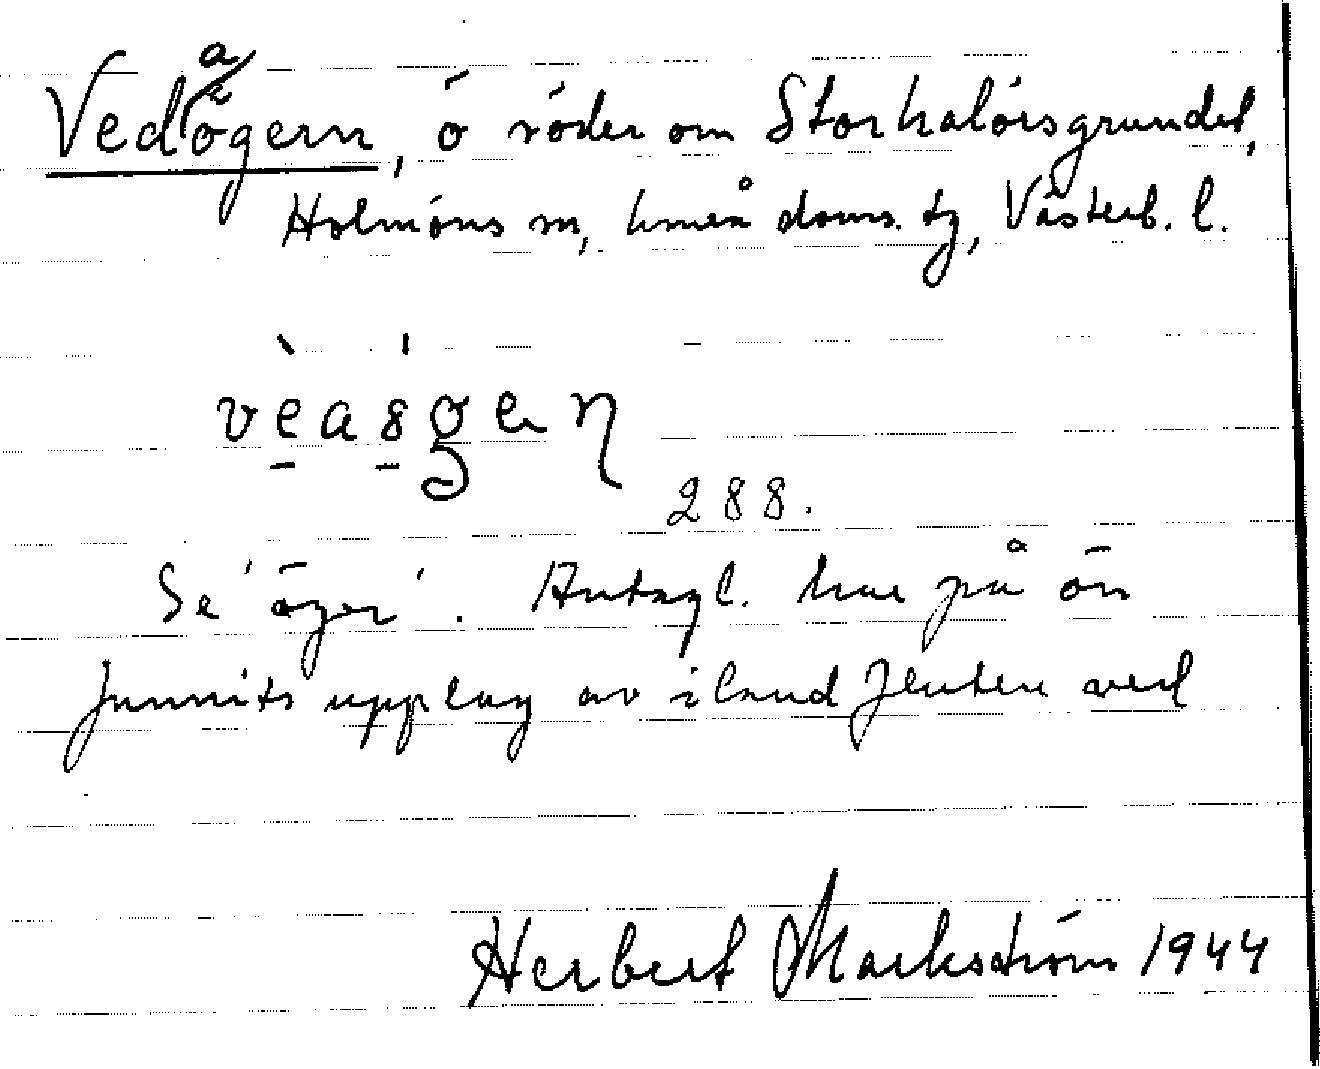 Vedaögern, ö söder om Storhalörsgrundet,
Holmöns sn, Umeå doms. tg, Västerb. l.
288.
Se 'öger'. Antagl. har på ön
funnits upplag av ilandfluten ved
Herbert Markström 1944